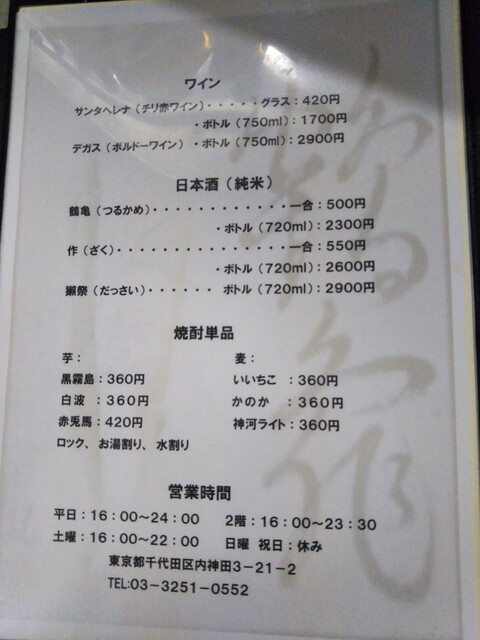 ワイン
サンタヘレナ（チリ赤ワイン）・・・・・グラス：420円
・ボトル（750ml）：1700円
デガス（ボルドーワイン）・ボトル（750ml）：2900円
日本酒（純米）
鶴亀（つるかめ）・・・・・・・・・・・・・・一合：500円
・ボトル（720ml）：2300円
作（ざく）・・・・・・・・・・・・・・・・・一合：550円
・ボトル（720ml）：2600円
獺祭（だっさい）・・・・・・ ボトル（720ml）：2900円
焼酎単品
芋： 麦：
黒霧島：360円 いいちこ ：360円
白波 ：360円 かのか ：360円
赤兎馬：420円 神河ライト：360円
ロック、お湯割り、水割り
営業時間
平日：16：00～24：00 2階：16：00～23：30
土曜：16：00～22：00 日曜 祝日：休み
東京都千代田区内神田3－21－2
TEL:03－3251－0552